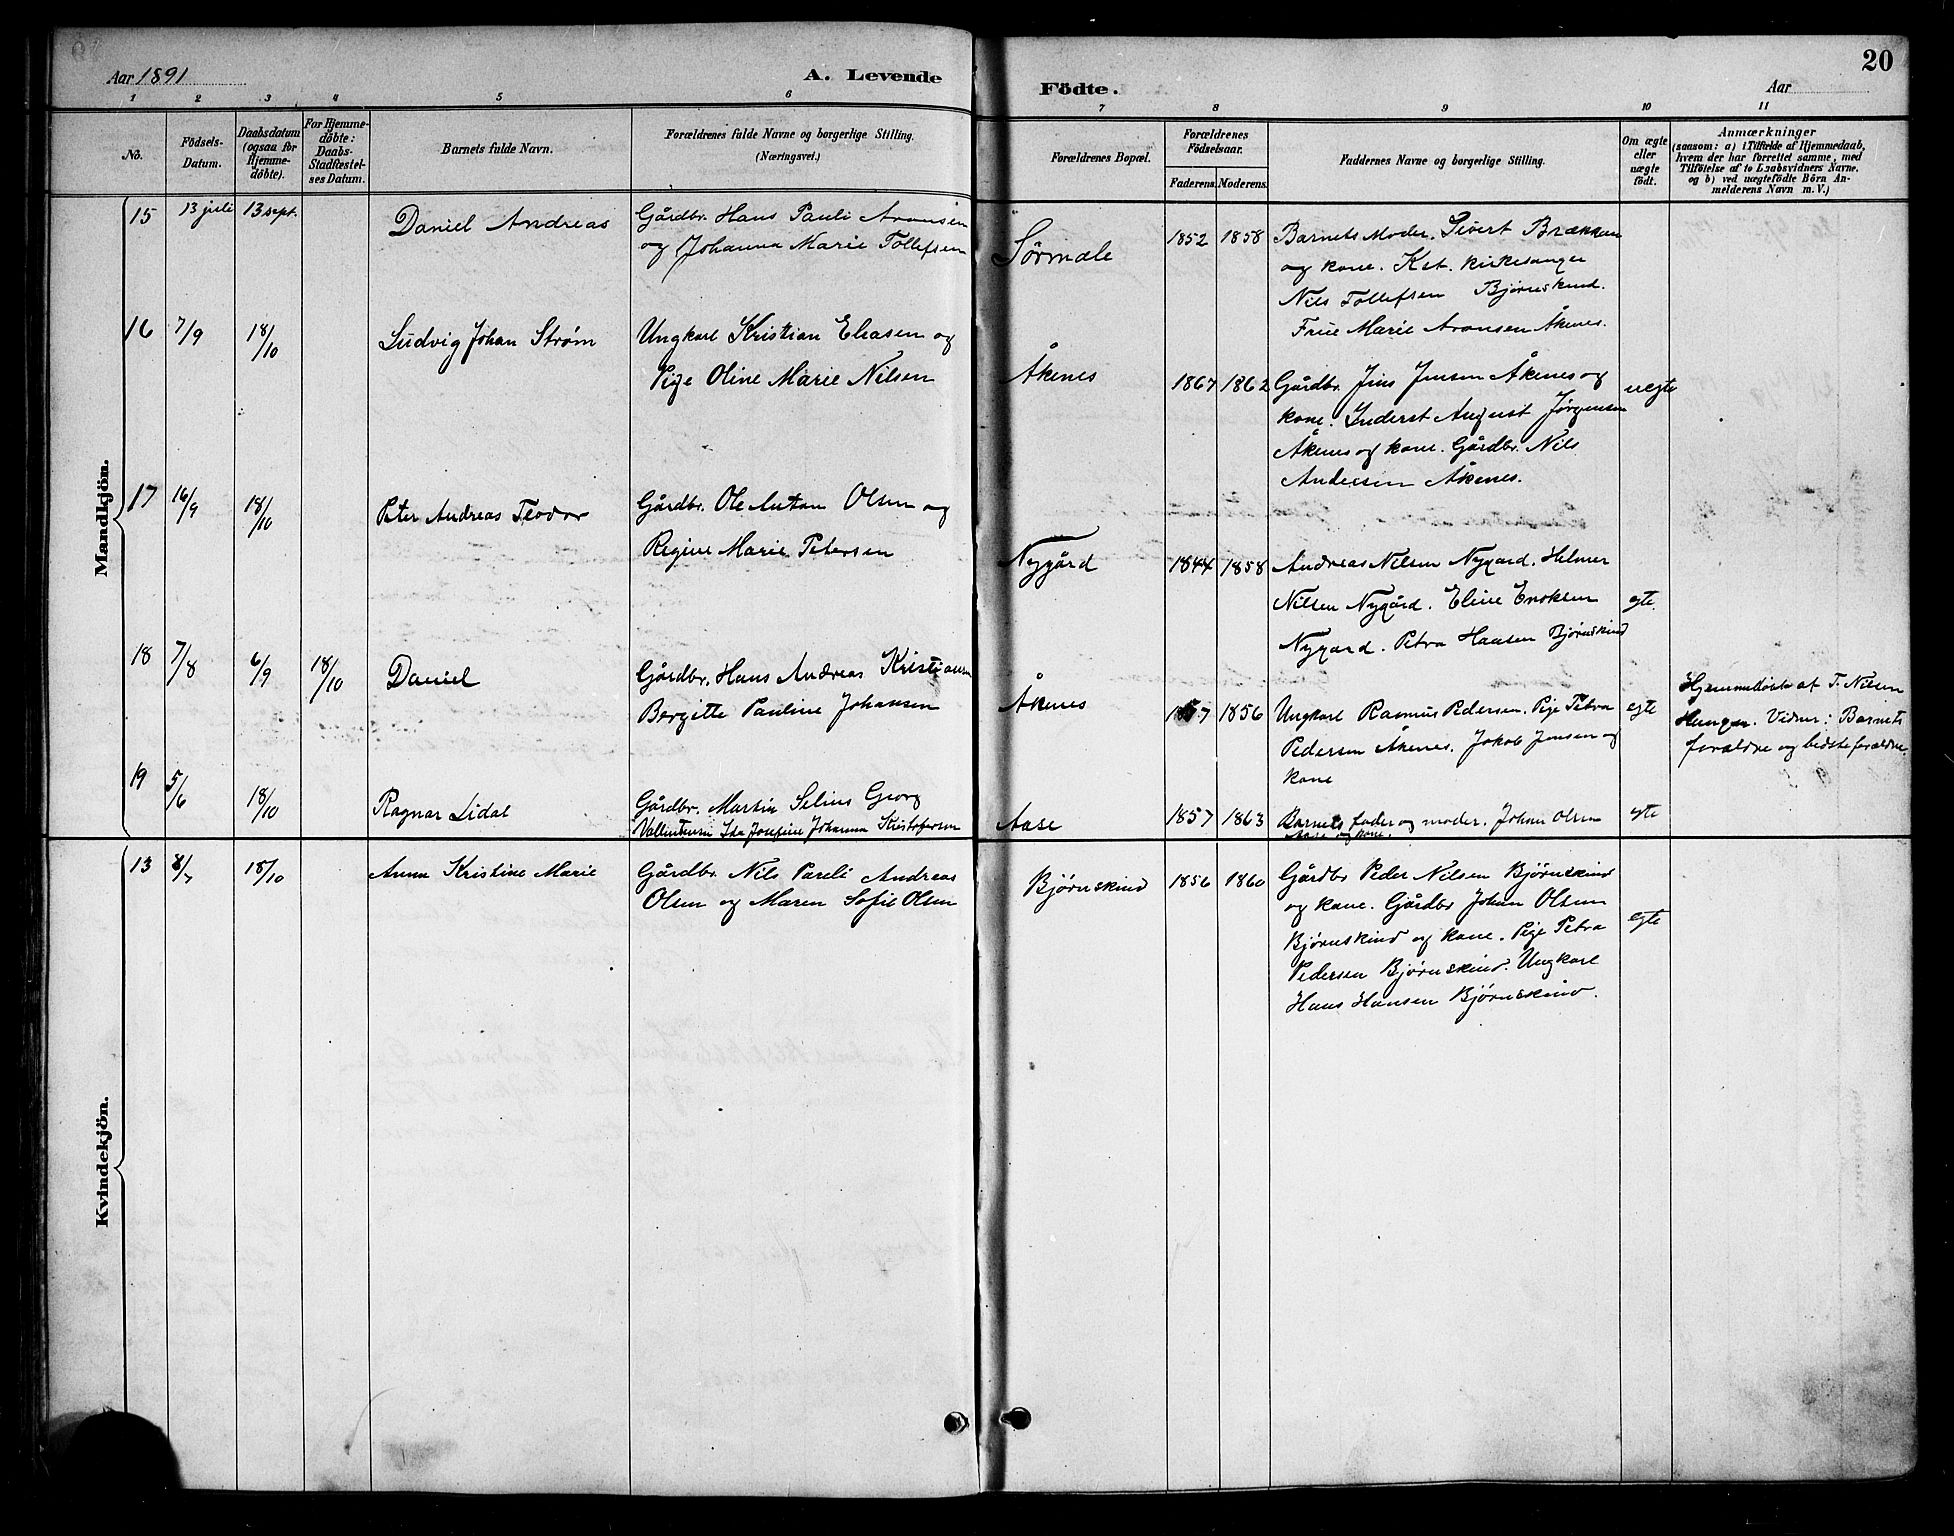 20
Aar 1891
A. Levende
Födte.
Aar
1 2 3 4 5 6 7 8 9 10 11
No.
Födsels-
Datum.
Daabsdatum
(ogsaa for
Hjemme-
döbte).
For Hjemme-
döbte:
Daabs-
Stadfæstel-
ses Datum.
Barnets fulde Navn.
Forældrenes fulde Navne og borgerlige Stilling.
(Næringsvei.)
Forældrenes Bopæl.
Forældrenes
Födselsaar.
Faderens. Moderens.
Faddernes Navne og borgerlige Stilling.
Om ægte
eller
uægte
födt.
Anmærkninger
(saasom: a) i Tilfælde af Hjemmedaab,
hvem der har forrettet samme, med
Tilföielse af to Daabsvidners Navne.
og b) ved uægtefödte Börn An-
melderens Navn m. V.)
Mandkjön.
15 13 juli 13 sept. Daniel Andreas
Gårdbr. Hans Pauli Aronsen
og Johanna Marie Tollefsen
Sörmæle 1852 1858
Barnets Moder. Sivert Brækken
og kone. Kst. kirkesanger
Nils Tollefsen Bjørnskind.
Frue Marie Aronsen Åkenes.
16 7/9 18/10 Ludvig Johan Strøm
Ungkarl Kristian Eliasen og
Pige Oline Marie Nilsen
Åkenes 1867 1862
Gårdbr. Jens Jensen Åkenes og
kone. Inderst August Jørgensen
Åkenes og kone. Gårdbr. Nils
Andersen Åkenes.
uegte
17 16/9 18/10 Peter Andreas Teodor
Gårdbr. Ole Anton Olsen og
Regine Marie Petersen
Nygård 1844 1858
Andreas Nilsen Nygard. Helmer
Nilsen Nygård. Eline Enoksen
Nygard. Petra Hansen Bjørnskind
egte.
18 7/8 6/9 18/10 Daniel
Gårdbr. Hans Andreas Kristiansen
Bergitte Pauline Johansen
Åkenes 1857 1856
Ungkarl Rasmus Pedersen. Pige Petra
Pedersen Åkenes. Jakob Jensen og
kone
egte
Hjemmedöbt af T. Nilsen
Vidner: Barnets
forældre og bedsteforældre.
19 5/6 18/10 Ragnar Lidal
Gårdbr. Martin Selius Georg
Vallentinsen Ida Josefine Johanna Kristofersen
Aase 1857 1863
Barnets fader og moder. Johan Olsen
Aase og kone.
egte
Kvindekjön.
13 8/7 18/10 Anna Kristine Marie
Gårdbr. Nils Pareli Andreas
Olsen og Maren Sofie Olsen
Bjørnskind 1856 1860
Gårdbr Peder Nilsen Bjørnskind
og kone. Gårdbr Johan Olsen
Bjørnskind og kone. Pige Petra
Pedersen Bjørnskind. Ungkarl
Hans Hansen Bjørnskind.
egte